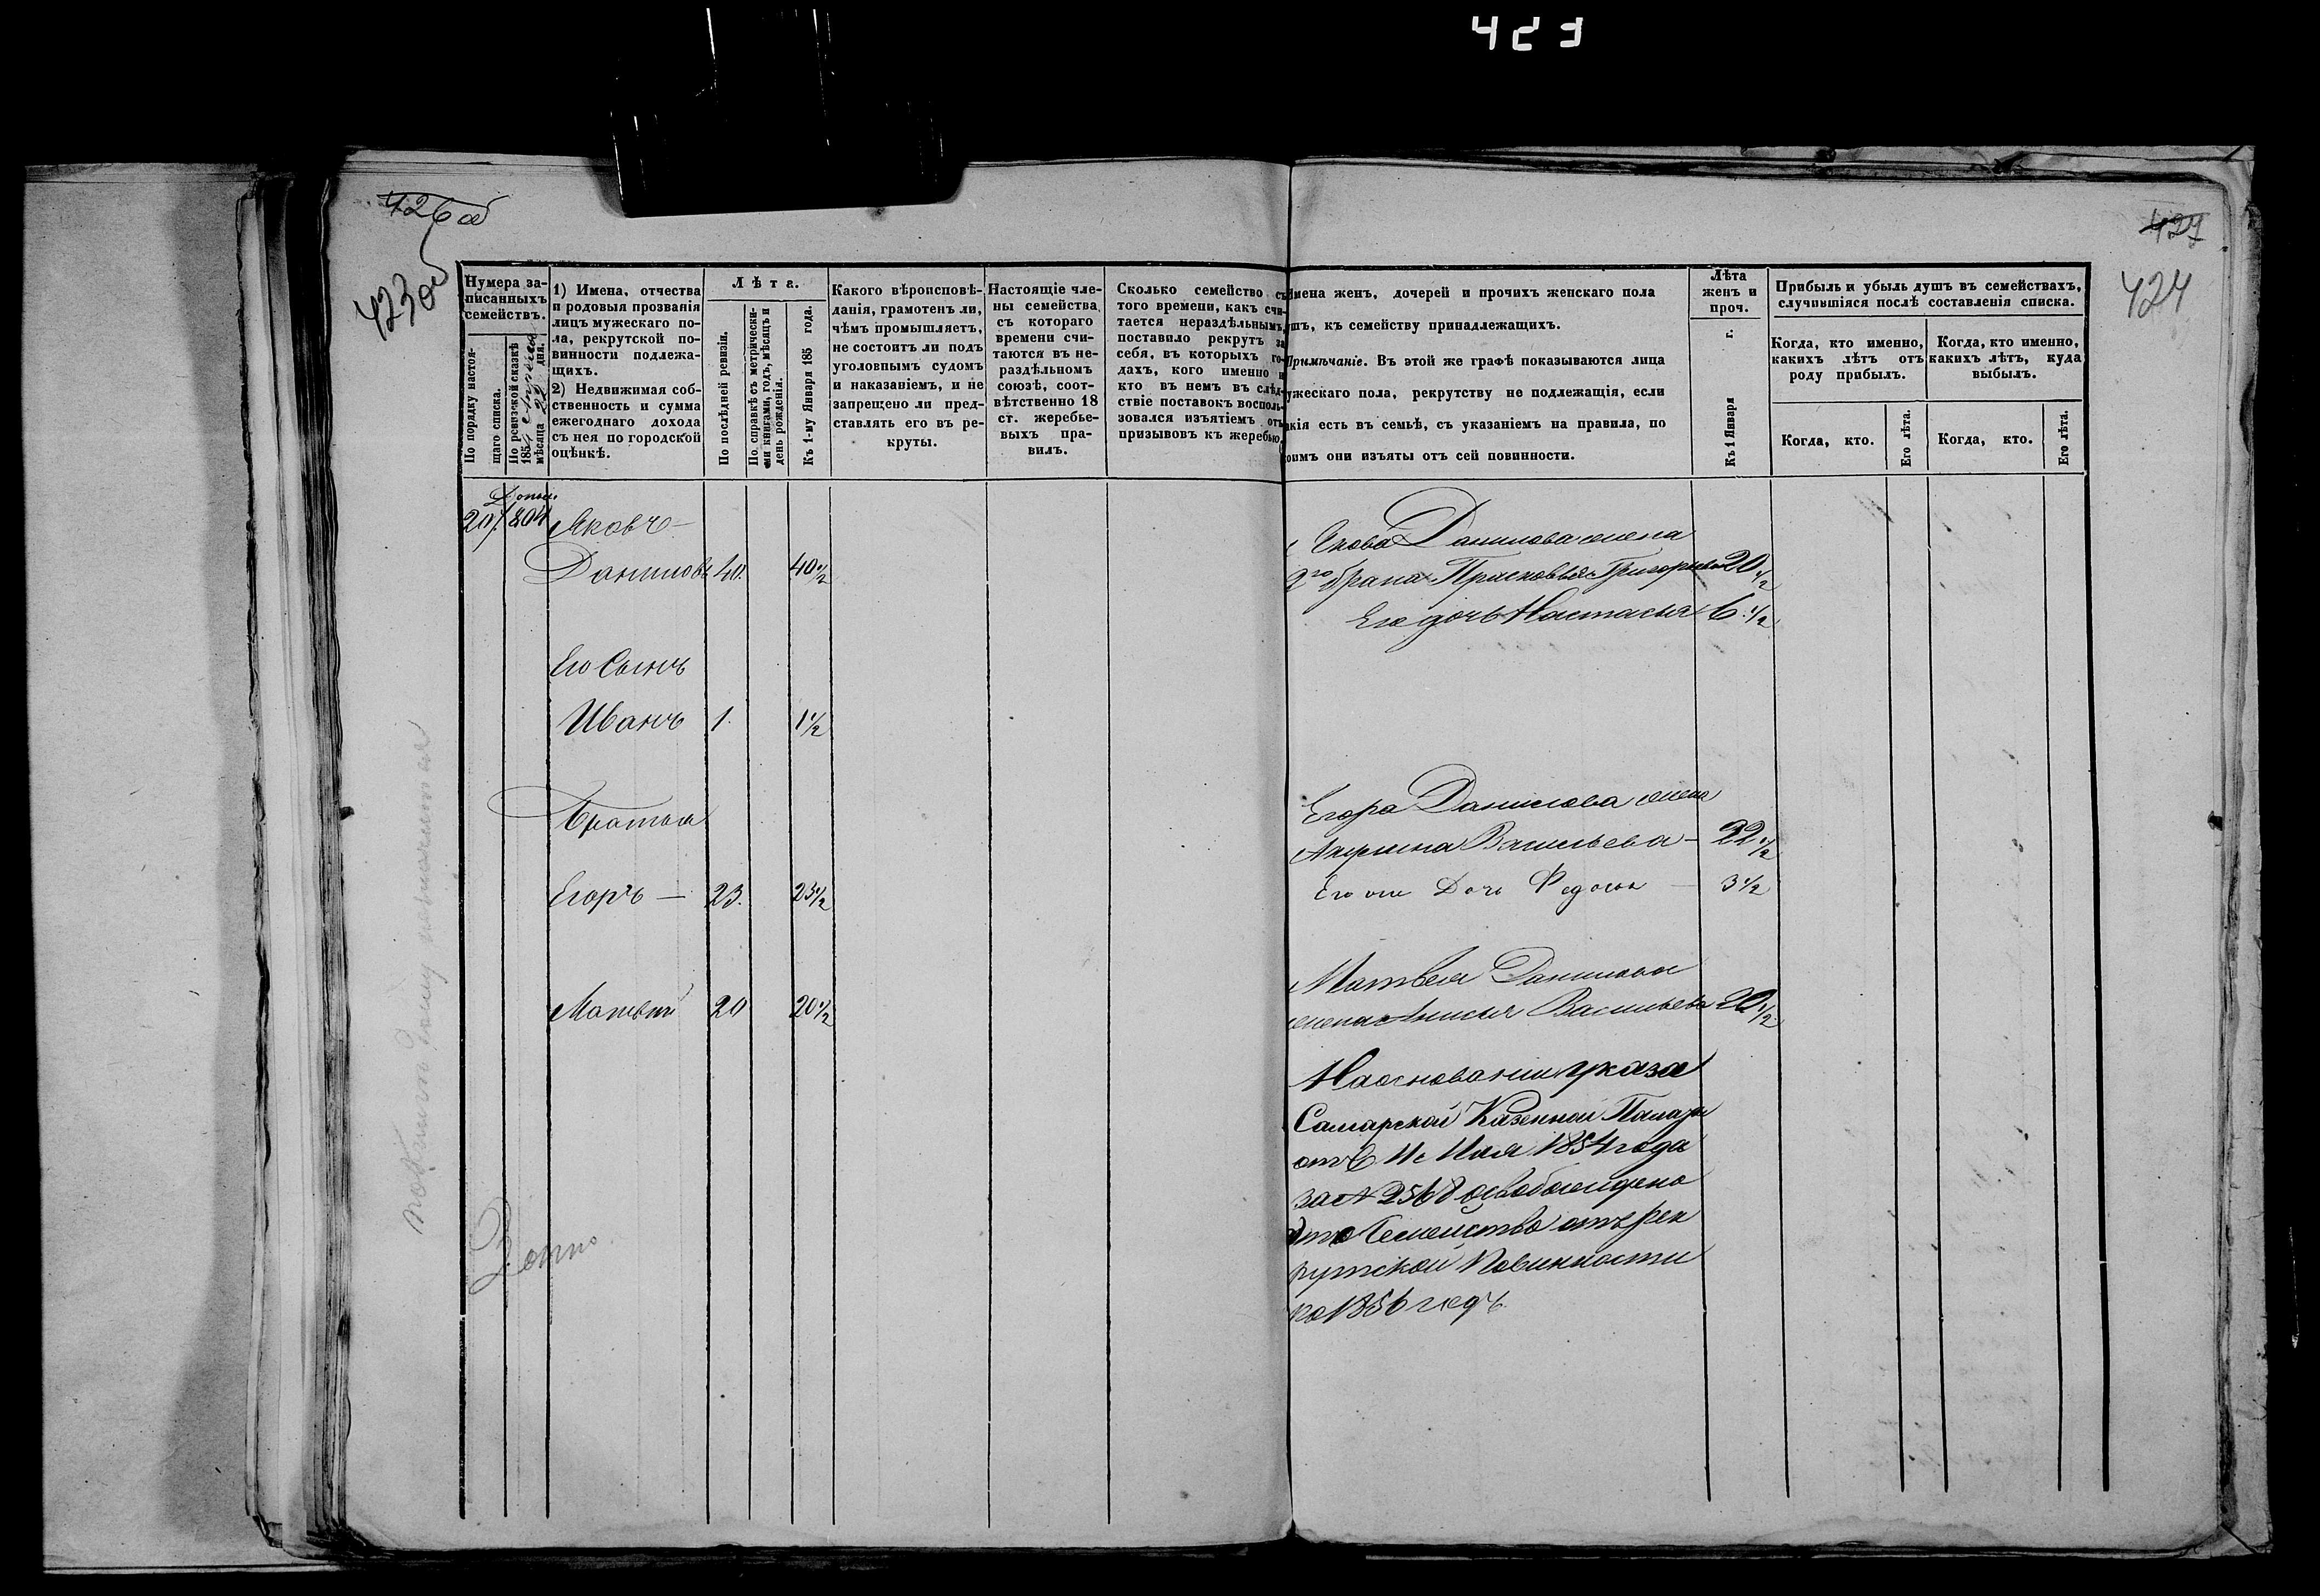 423
426 об
423 об
427
424
Нумера за-
писанныхъ
семействъ.
По порядку настоя-
щаго списка.
По ревизской сказкѣ
185
мѣсяца 22 дня.
1) Имена, отчества
и родовыя прозванія
лицъ мужескаго по-
ла, рекрутской по-
винности подлежа-
щихъ.
2) Недвижимая соб-
ственность и сумма
ежегоднаго дохода
съ нея по городской
оцѣнкѣ.
Лѣта.
По послѣдней ревизіи.
По справкѣ съ метрически-
ми книгами, годъ, мѣсяцъ и
день рожденія.
Къ 1-му Января 185 года.
Какого вѣроисповѣ-
данія, грамотенъ ли,
чѣмъ промышляетъ,
не состоитъ ли подъ
уголовнымъ судомъ
и наказаніемъ, и не
запрещено ли пред-
ставлять его въ ре-
круты.
Настоящіе чле-
ны семейства,
съ котораго
времени счи-
таются въ не-
раздѣльномъ
союзѣ, соот-
вѣтственно 18
ст. жеребье-
выхъ пра-
вилъ.
Сколько семейство съ
того времени, какъ счи-
тается нераздѣльнымъ,
поставило рекрутъ за
себя, въ которыхъ го-
дахъ, кого именно и
кто въ немъ въ слѣд-
ствіе поставокъ восполь-
зовался изъятіемъ отъ
призывовъ къ жеребью.
Имена женъ, дочерей и прочихъ женскаго пола
ушъ, къ семейству принадлежащихъ.
Примѣчаніе. Въ этой же графѣ показываются лица
ужескаго пола, рекрутству не подлежащія, если
акія есть въ семьѣ, съ указаніемъ на правила, по
оимъ они изъяты отъ сей повинности.
Лѣта
женъ и
проч.
Къ 1 Января г.
Прибыль и убыль душъ въ семействахъ,
случившіяся послѣ составленія списка.
Когда, кто именно,
какихъ лѣтъ отъ
роду прибылъ.
Когда, кто именно,
какихъ лѣтъ, куда
выбылъ.
Когда, кто.
Его лѣта.
Когда, кто.
Его лѣта.
207. 804 Яковъ
Даниловъ 40. 40½
Его Сынъ
Иванъ 1. 1½
Братья
Егоръ — 23. 23½
Матвѣй 20 20½
Якова Данилова жена
2го брака Прасковья Григорьева 20½
Его дочь Настасья 6½
Егора Данилова жена
Акулина Васильева — 22½
Его же Дочь Федосья — 3½
Матвея Данилова
жена Анисья Васильева 20½
На основании указа
Самарской Казенной Палаты
отъ Мая 1854 года
за № 2568 освобождено
это Семейство отъ рек
рутской Повинности
по 1856 годъ.